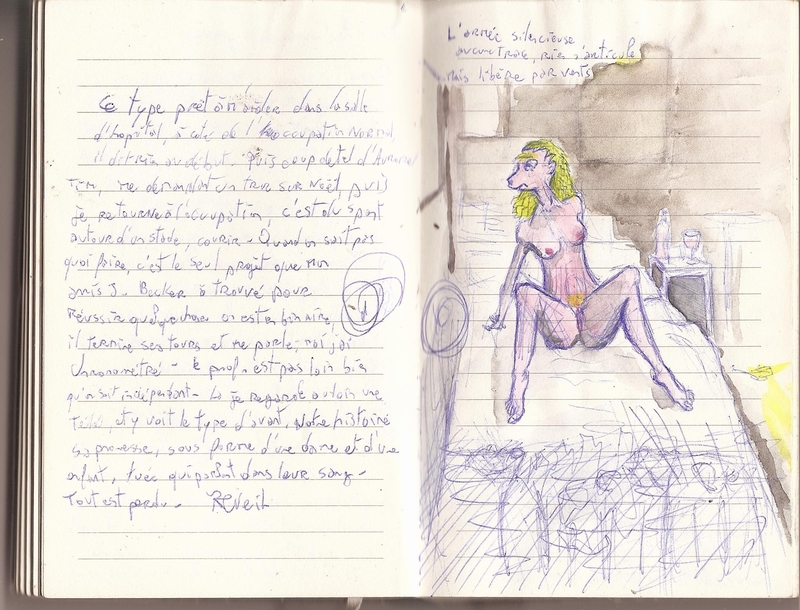 Ce type prêt à m'aider dans la salle
d'hôpital, à coté de l'occupation Normal,
il dit rien au début. Puis coup de tel d'
me demandant un truc sur Noët, puis
je retourne à l'occupation, c'est du sport
autour d'un stade, courir - Quand on sait pas
quoi faire, c'est le seul projet que mon
amis J. Becker à trouvé pour
Réussir quelque chose on est en binaire,
il termine ses tours et me parle, moi j'ai
chronométré - le prof. est pas loin bis
qu'on soit indépendant - Là je regarde au loin une
Télé, et y voit le type d'avant. Notre histoire
sa promesse, sous forme d'une dame et d'une
enfant, tués qui partent dans leur sang -
Tout est perdu - Réveil
L'armée silencieuse
aucune trace, rien s'articule
mais libère par vents